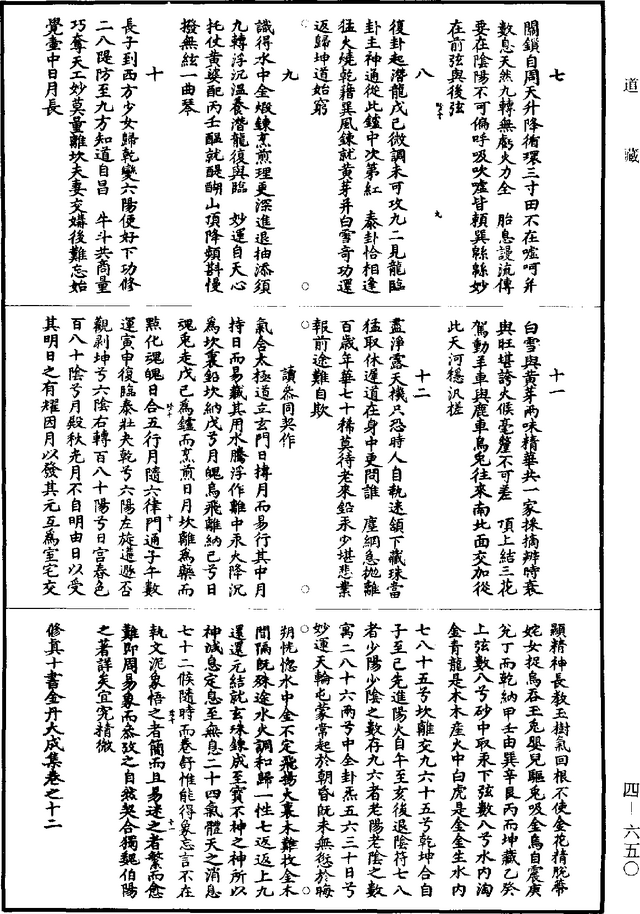 道藏
七
關鎖自周天升降循環三寸田不在噓呵并
數息天然九轉無虧火力全　胎息謾流傳
要在陰陽不可偏呼吸吹噓皆賴巽緜緜妙
在前弦與後弦
八
復卦起潛龍戊己微調未可攻九二見龍臨
卦主神通從此鑪中次第紅　泰卦恰相逢
猛火燒乾藉巽風鍊就黃芽并白雪奇功還
返歸坤道始窮
九
識得水中金煅鍊烹煎理更深進退抽添須
九轉浮沉溫養潛龍復與臨　妙運自天心
托仗黃婆配丙壬醞就醍醐山頂降頻斟慢
撥無絃一曲琴
十
長子到西方少女歸乾變六陽便好下功修
二八隄防至九方知道自昌　牛斗共商量
巧奪天工妙莫量離坎夫妻交媾後難忘始
覺壺中日月長
十一
白雪與黃芽兩味精華共一家採摘辨時衰
與旺堪誇火候毫釐不可差　頂上結三花
駕動羊車與鹿車烏兔往來南北面交加從
此天河穩汎槎
十二
盡淨露天機只恐時人自執迷頷下藏珠當
猛取休遲道在身中更問誰　塵網急抛離
百歲年華七十稀莫待老來鉛汞少堪悲業
報前途難自欺
讀參同契作
氣含太極道立玄門日揜月而易行其中月
持日而易藏其用水騰浮作離中汞火降沉
爲坎裏鉛坎納戊兮月魄烏飛離納己兮日
魂兔走戊己爲鑪而烹煎日月坎離爲藥而
點化魂魄日合五行月隨六律門通子午數
運寅申復臨泰壯夬乾兮六陽左旋遘遯否
觀剥坤兮六陰右轉百八十陽兮日宮春色
百八十陰兮月殿秋光月不自明由日以受
其明日之有耀因月以發其元互爲室宅交
顯精神長教玉樹氣回根不使金花精脫蔕
姹女捉烏吞玉兔嬰兒驅兔吸金烏自震庚
兌丁而乾納甲壬由巽辛艮丙而坤藏乙癸
上弦數八兮砂中取汞下弦數八兮水內淘
金青龍是木木產火中白虎是金金生水內
七八十五兮坎離交九六十五兮乾坤合自
子至巳先進陽火自午至亥後退陰符七八
者少陽少陰之數存九六者老陽老陰之數
寓二八十六兩兮中全卦炁五六三十日兮
妙運天輪屯蒙常起於朝昏既未無愆於晦
朔恍惚水中金不定飛揚火裏木難牧金木
間隔既殊途水火調和歸一性七返返上九
還還元結就玄珠鍊成至寶不神之神所以
神滅息定息至無息二十四氣體天之消息
七十二候隨時而卷舒惟能得象忘言不在
執文泥象悟之者簡而且易迷之者繁而愈
難即周易象而叅攷之自然契合獨魏伯陽
之著詳矣宜究精微
修真十書金丹大成集卷之十二
四—六五〇